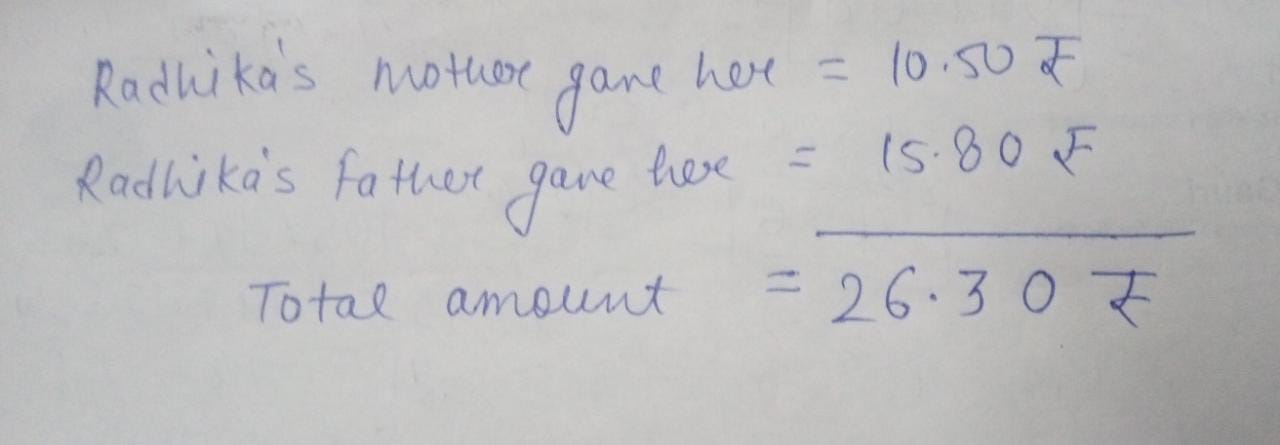 Radhika's mother gave her = 10.50 ₹
Radhika's father gave her = 15.80 ₹
Total amount = 26.30 ₹